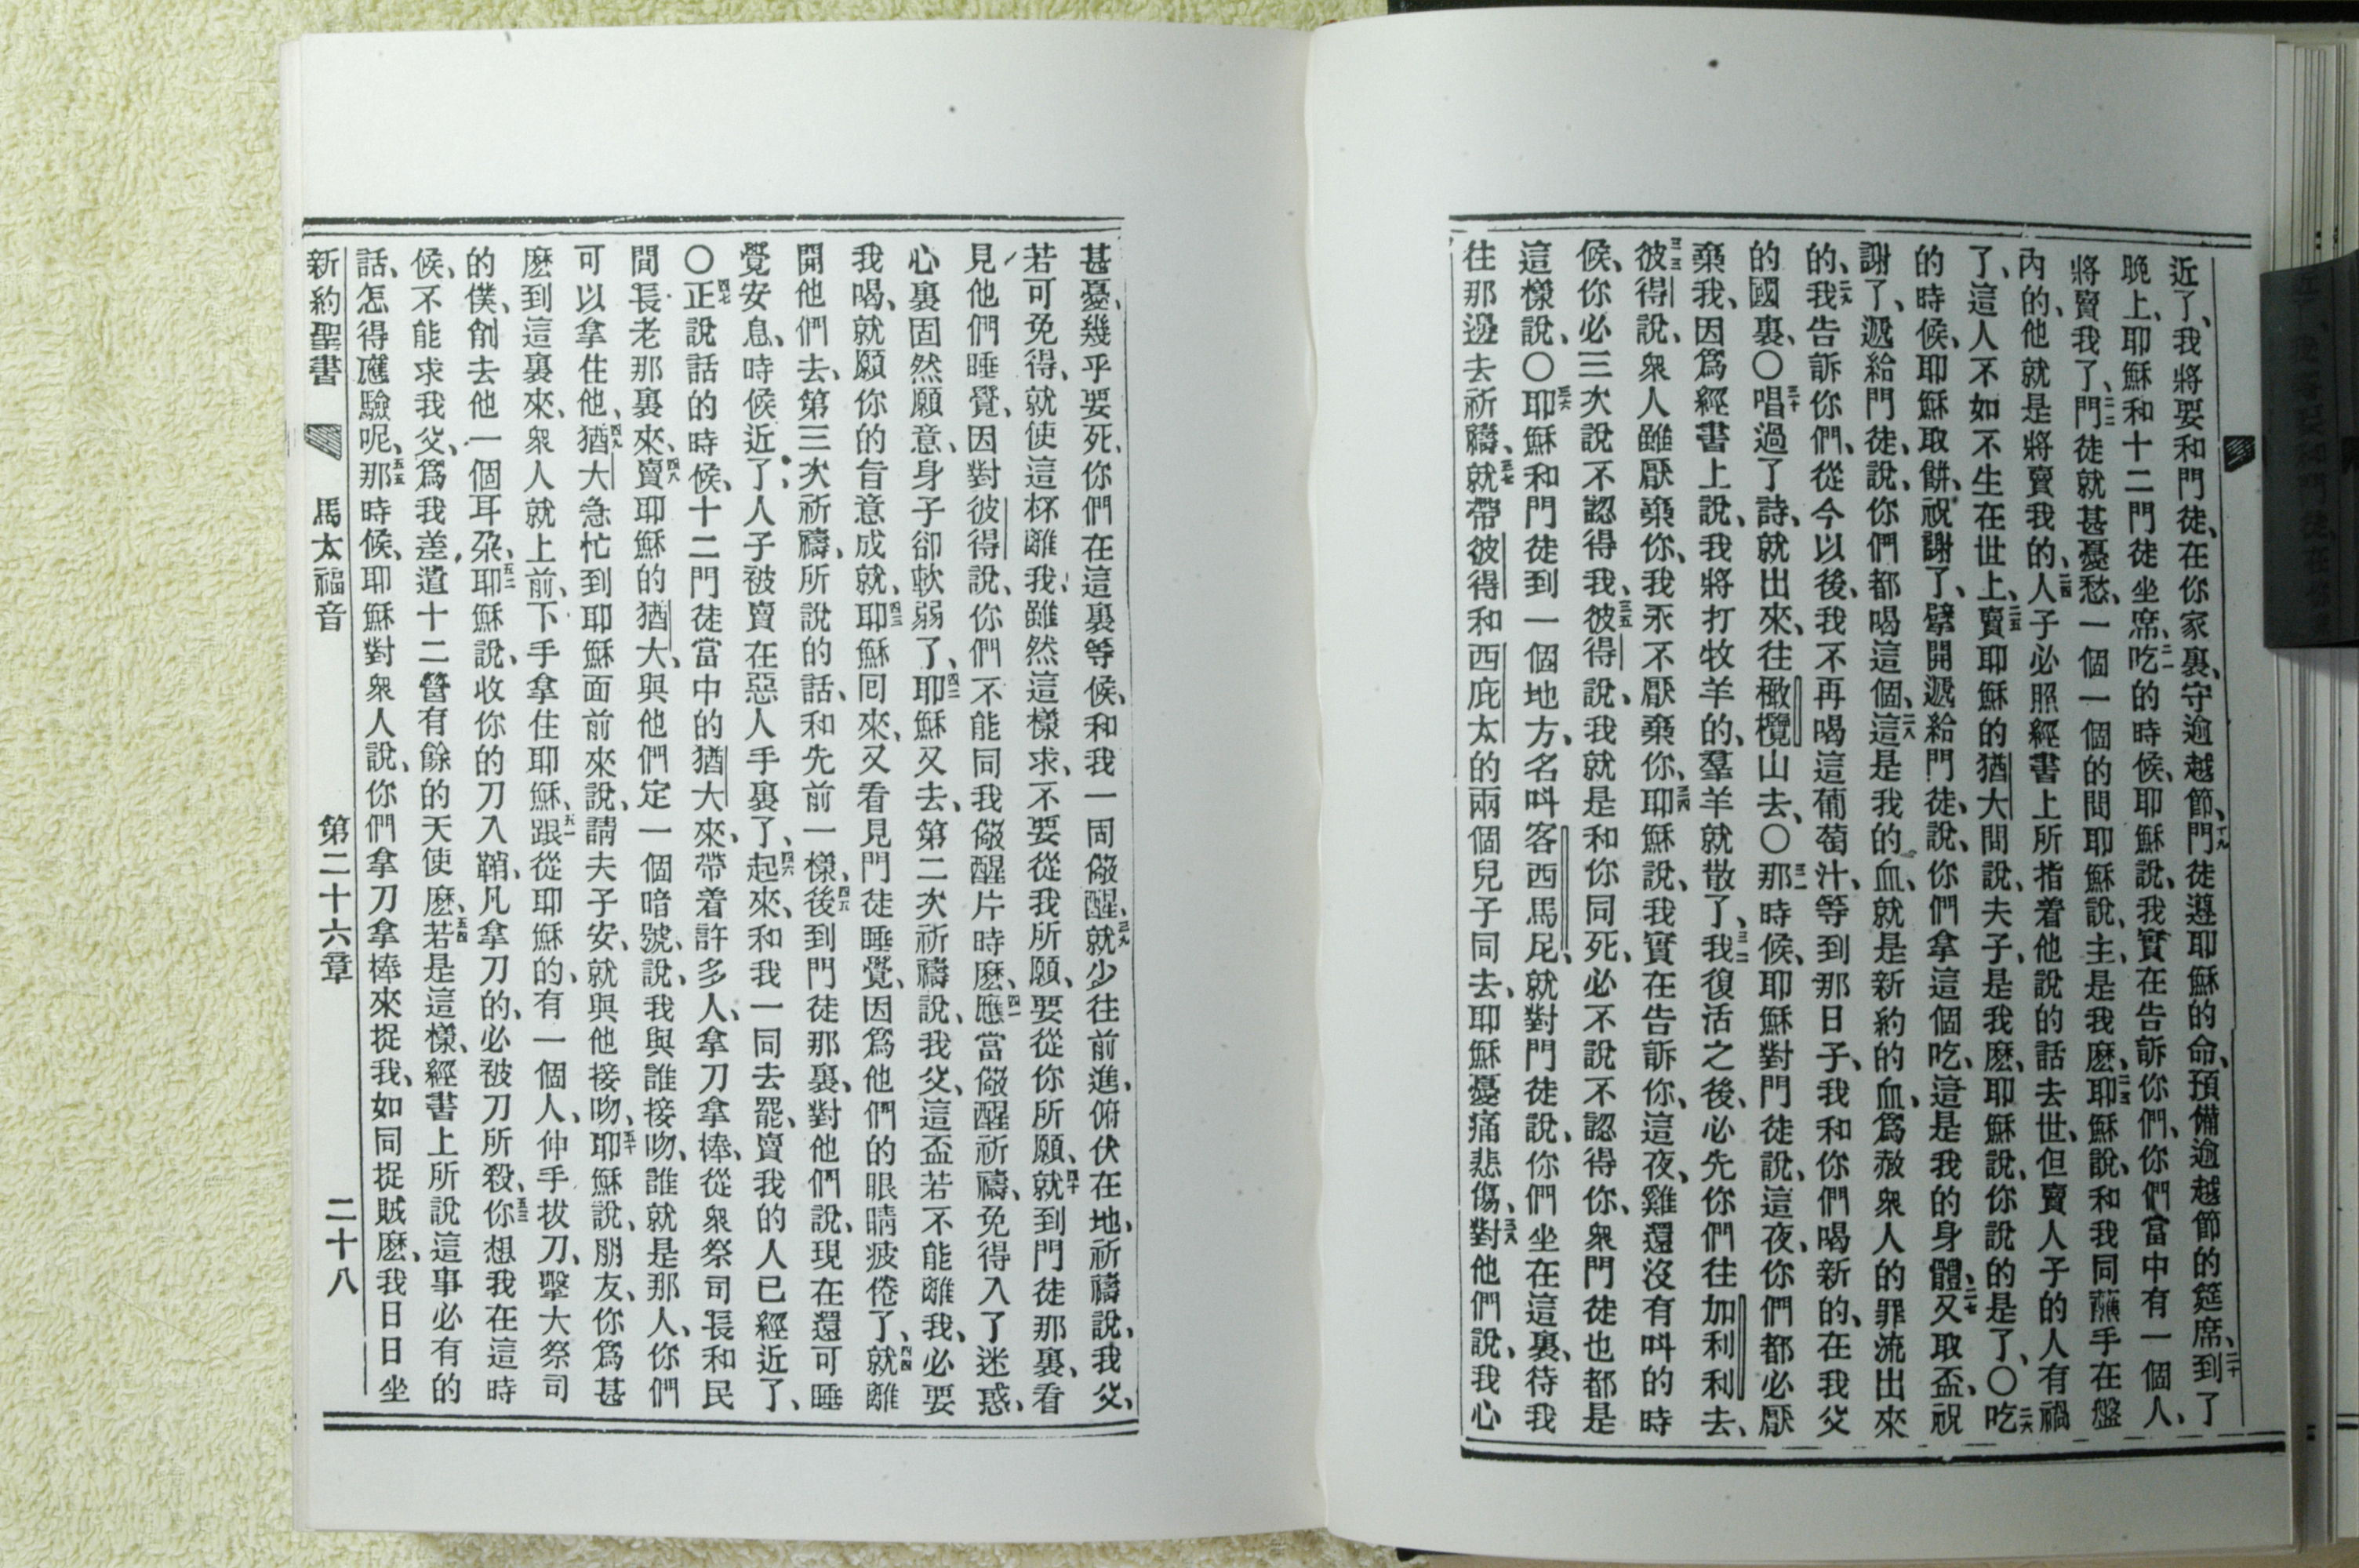 近了、我將要和門徒、在你家裏、守逾越節、十九門徒遵耶穌的命、預備逾越節的筵席、二十到了
晚上、耶穌和十二門徒坐席、二一吃的時候、耶穌說、我實在告訴你們、你們當中有一個人、
將賣我了、二二門徒就甚憂愁、一個一個的問耶穌說、主、是我麽、二三耶穌說、和我同蘸手在盤
內的、他就是將賣我的、二四人子必照經書上所指着他說的話去世、但賣人子的人有禍
了、這人不如不生在世上、二五賣耶穌的猶大問說、夫子、是我麽、耶穌說、你說的是了、〇二六吃
的時候、耶穌取餅、祝謝了、擘開遞給門徒、說、你們拿這個吃、這是我的身體、二七又取盃、祝
謝了、遞給門徒、說、你們都喝這個、二八這是我的血、就是新約的血、爲赦衆人的罪流出來
的、二九我告訴你們、從今以後、我不再喝這葡萄汁、等到那日子、我和你們喝新的、在我父
的國裏、〇三十唱過了詩、就出來、往橄欖山去、〇三一那時候、耶穌對門徒說、這夜、你們都必厭
棄我、因爲經書上說、我將打牧羊的、羣羊就散了、三二我復活之後、必先你們往加利利去、
三三彼得說、衆人雖厭棄你、我永不厭棄你、三四耶穌說、我實在告訴你、這夜、雞還沒有呌的時
候、你必三次說不認得我、三五彼得說、我就是和你同死、必不說不認得你、衆門徒也都是
這樣說、〇三六耶穌和門徒到一個地方、名呌客西馬尼、就對門徒說、你們坐在這裏、待我
往那邊去祈禱、三七就帶彼得和西庇太的兩個兒子同去、耶穌憂痛悲傷、三八對他們說、我心
甚憂、幾乎要死、你們在這裏等候、和我一同儆醒、三九就少往前進、俯伏在地、祈禱說、我父、
若可免得、就使這杯離我、雖然這樣求、不要從我所願、要從你所願、四十就到門徒那裏、看
見他們睡覺、因對彼得說、你們不能同我儆醒片時麽、四一應當儆醒祈禱、免得入了迷惑、
心裏固然願意、身子卻軟弱了、四二耶穌又去、第二次祈禱說、我父、這盃若不能離我、必要
我喝、就願你的旨意成就、四三耶穌囘來、又看見門徒睡覺、因爲他們的眼睛疲倦了、四四就離
開他們去、第三次祈禱、所說的話、和先前一樣、四五後到門徒那裏、對他們說、現在還可睡
覺安息、時候近了、人子被賣在惡人手裏了、四六起來、和我一同去罷、賣我的人已經近了、
〇四七正說話的時候、十二門徒當中的猶大來、帶着許多人、拿刀拿棒、從衆祭司長和民
間長老那裏來、四八賣耶穌的猶大、與他們定一個暗號、說、我與誰接吻、誰就是那人、你們
可以拿住他、四九猶大急忙到耶穌面前來說、請夫子安、就與他接吻、五十耶穌說、朋友、你爲甚
麽到這裏來、衆人就上前、下手拿住耶穌、五一跟從耶穌的、有一個人、伸手拔刀、擊大祭司
的僕、削去他一個耳朶、五二耶穌說、收你的刀入鞘、凡拿刀的、必被刀所殺、五三你想我在這時
候、不能求我父、爲我差遣十二營有餘的天使麽、五四若是這樣、經書上所說這事必有的
話、怎得應驗呢、五五那時候、耶穌對衆人說、你們拿刀拿棒來捉我、如同捉賊麽、我日日坐
新約聖書 馬太福音 第二十六章 二十八